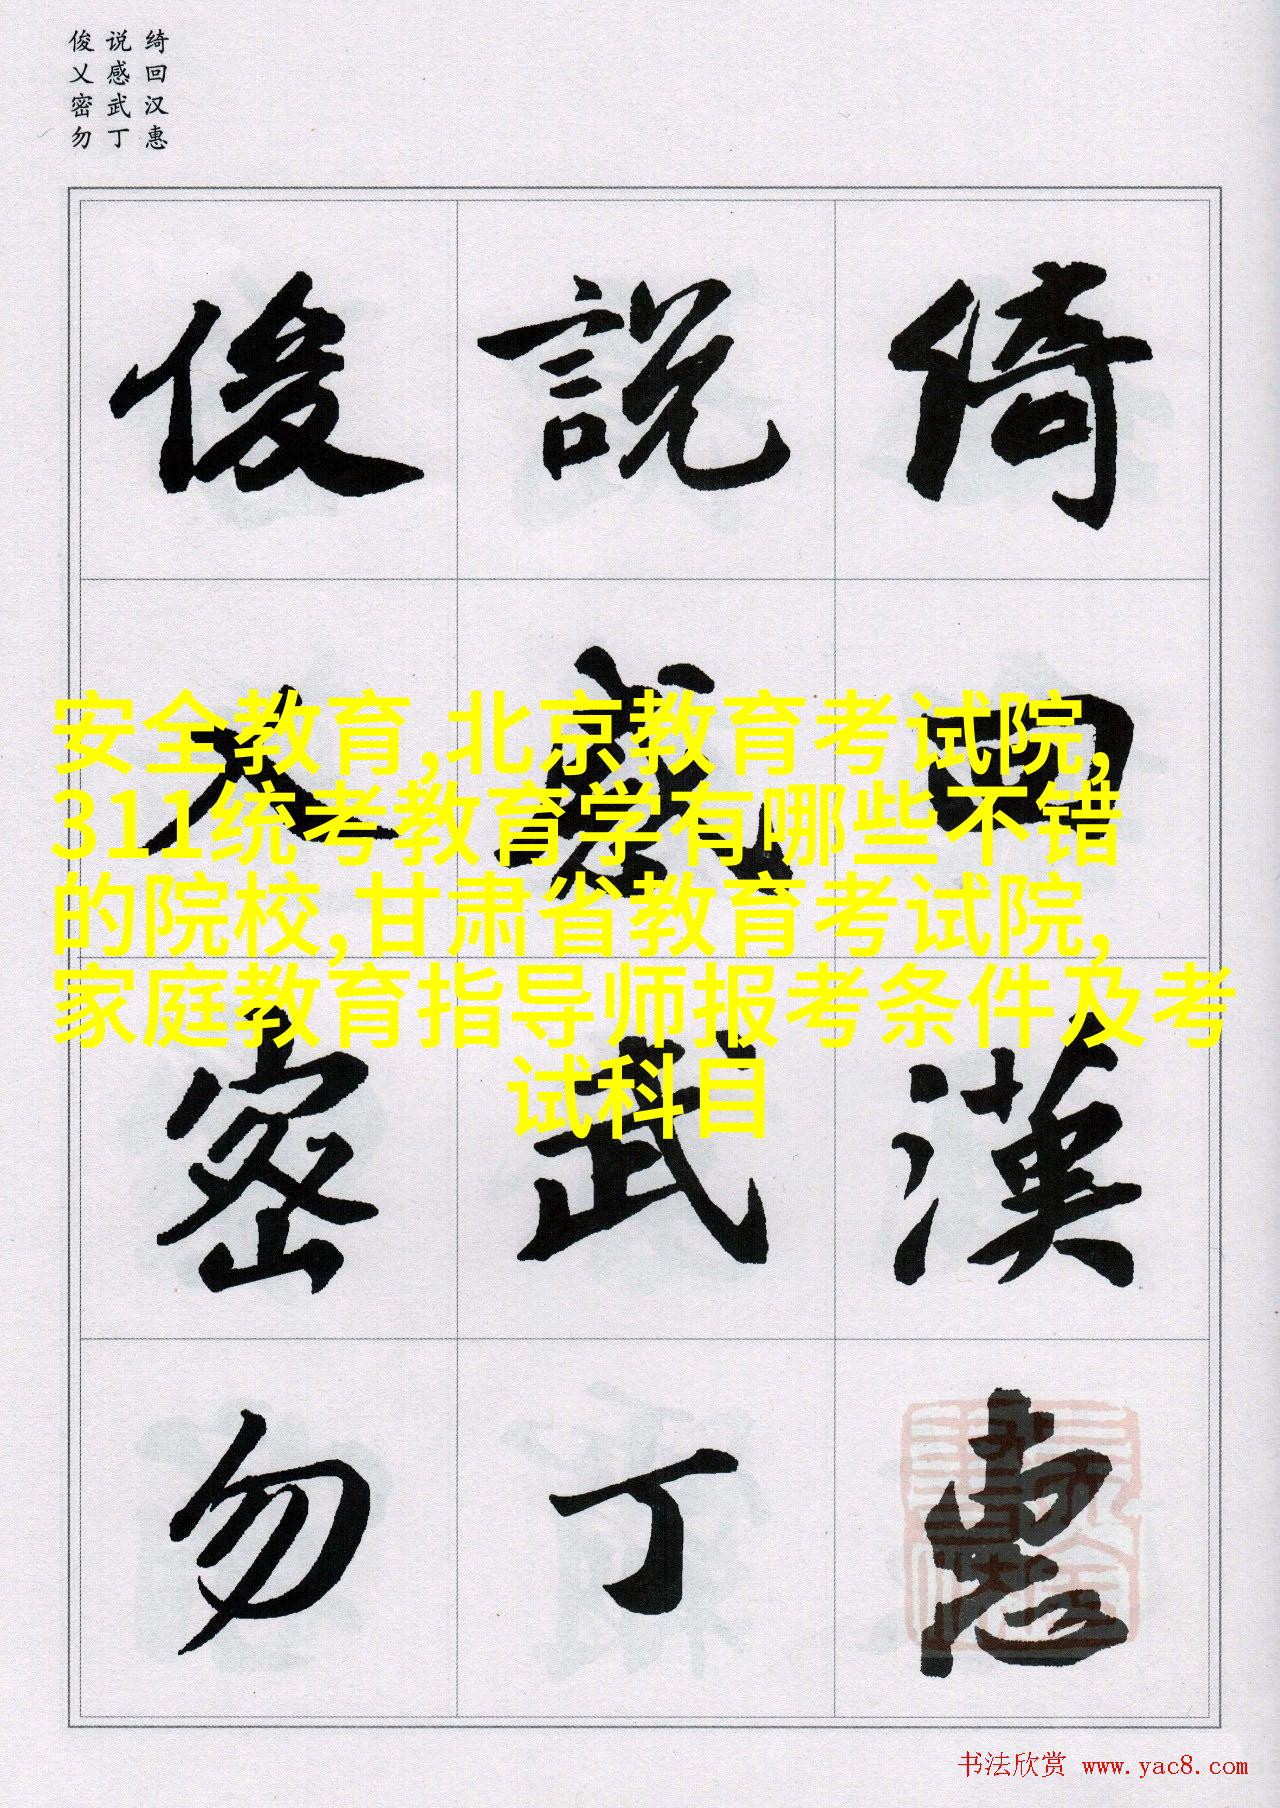 俊 说 绮
乂 感 回
密 武 汉
勿 丁 惠
俊 說 綺
乂 感 回
安全教育,北京教育考试院,
311统考教育学有哪些不错
的院校,甘肃省教育考试院,
家庭教育指导师报考条件及考
试科目
密 武 漢
勿 丁 惠
书法欣赏 www.yac8.com